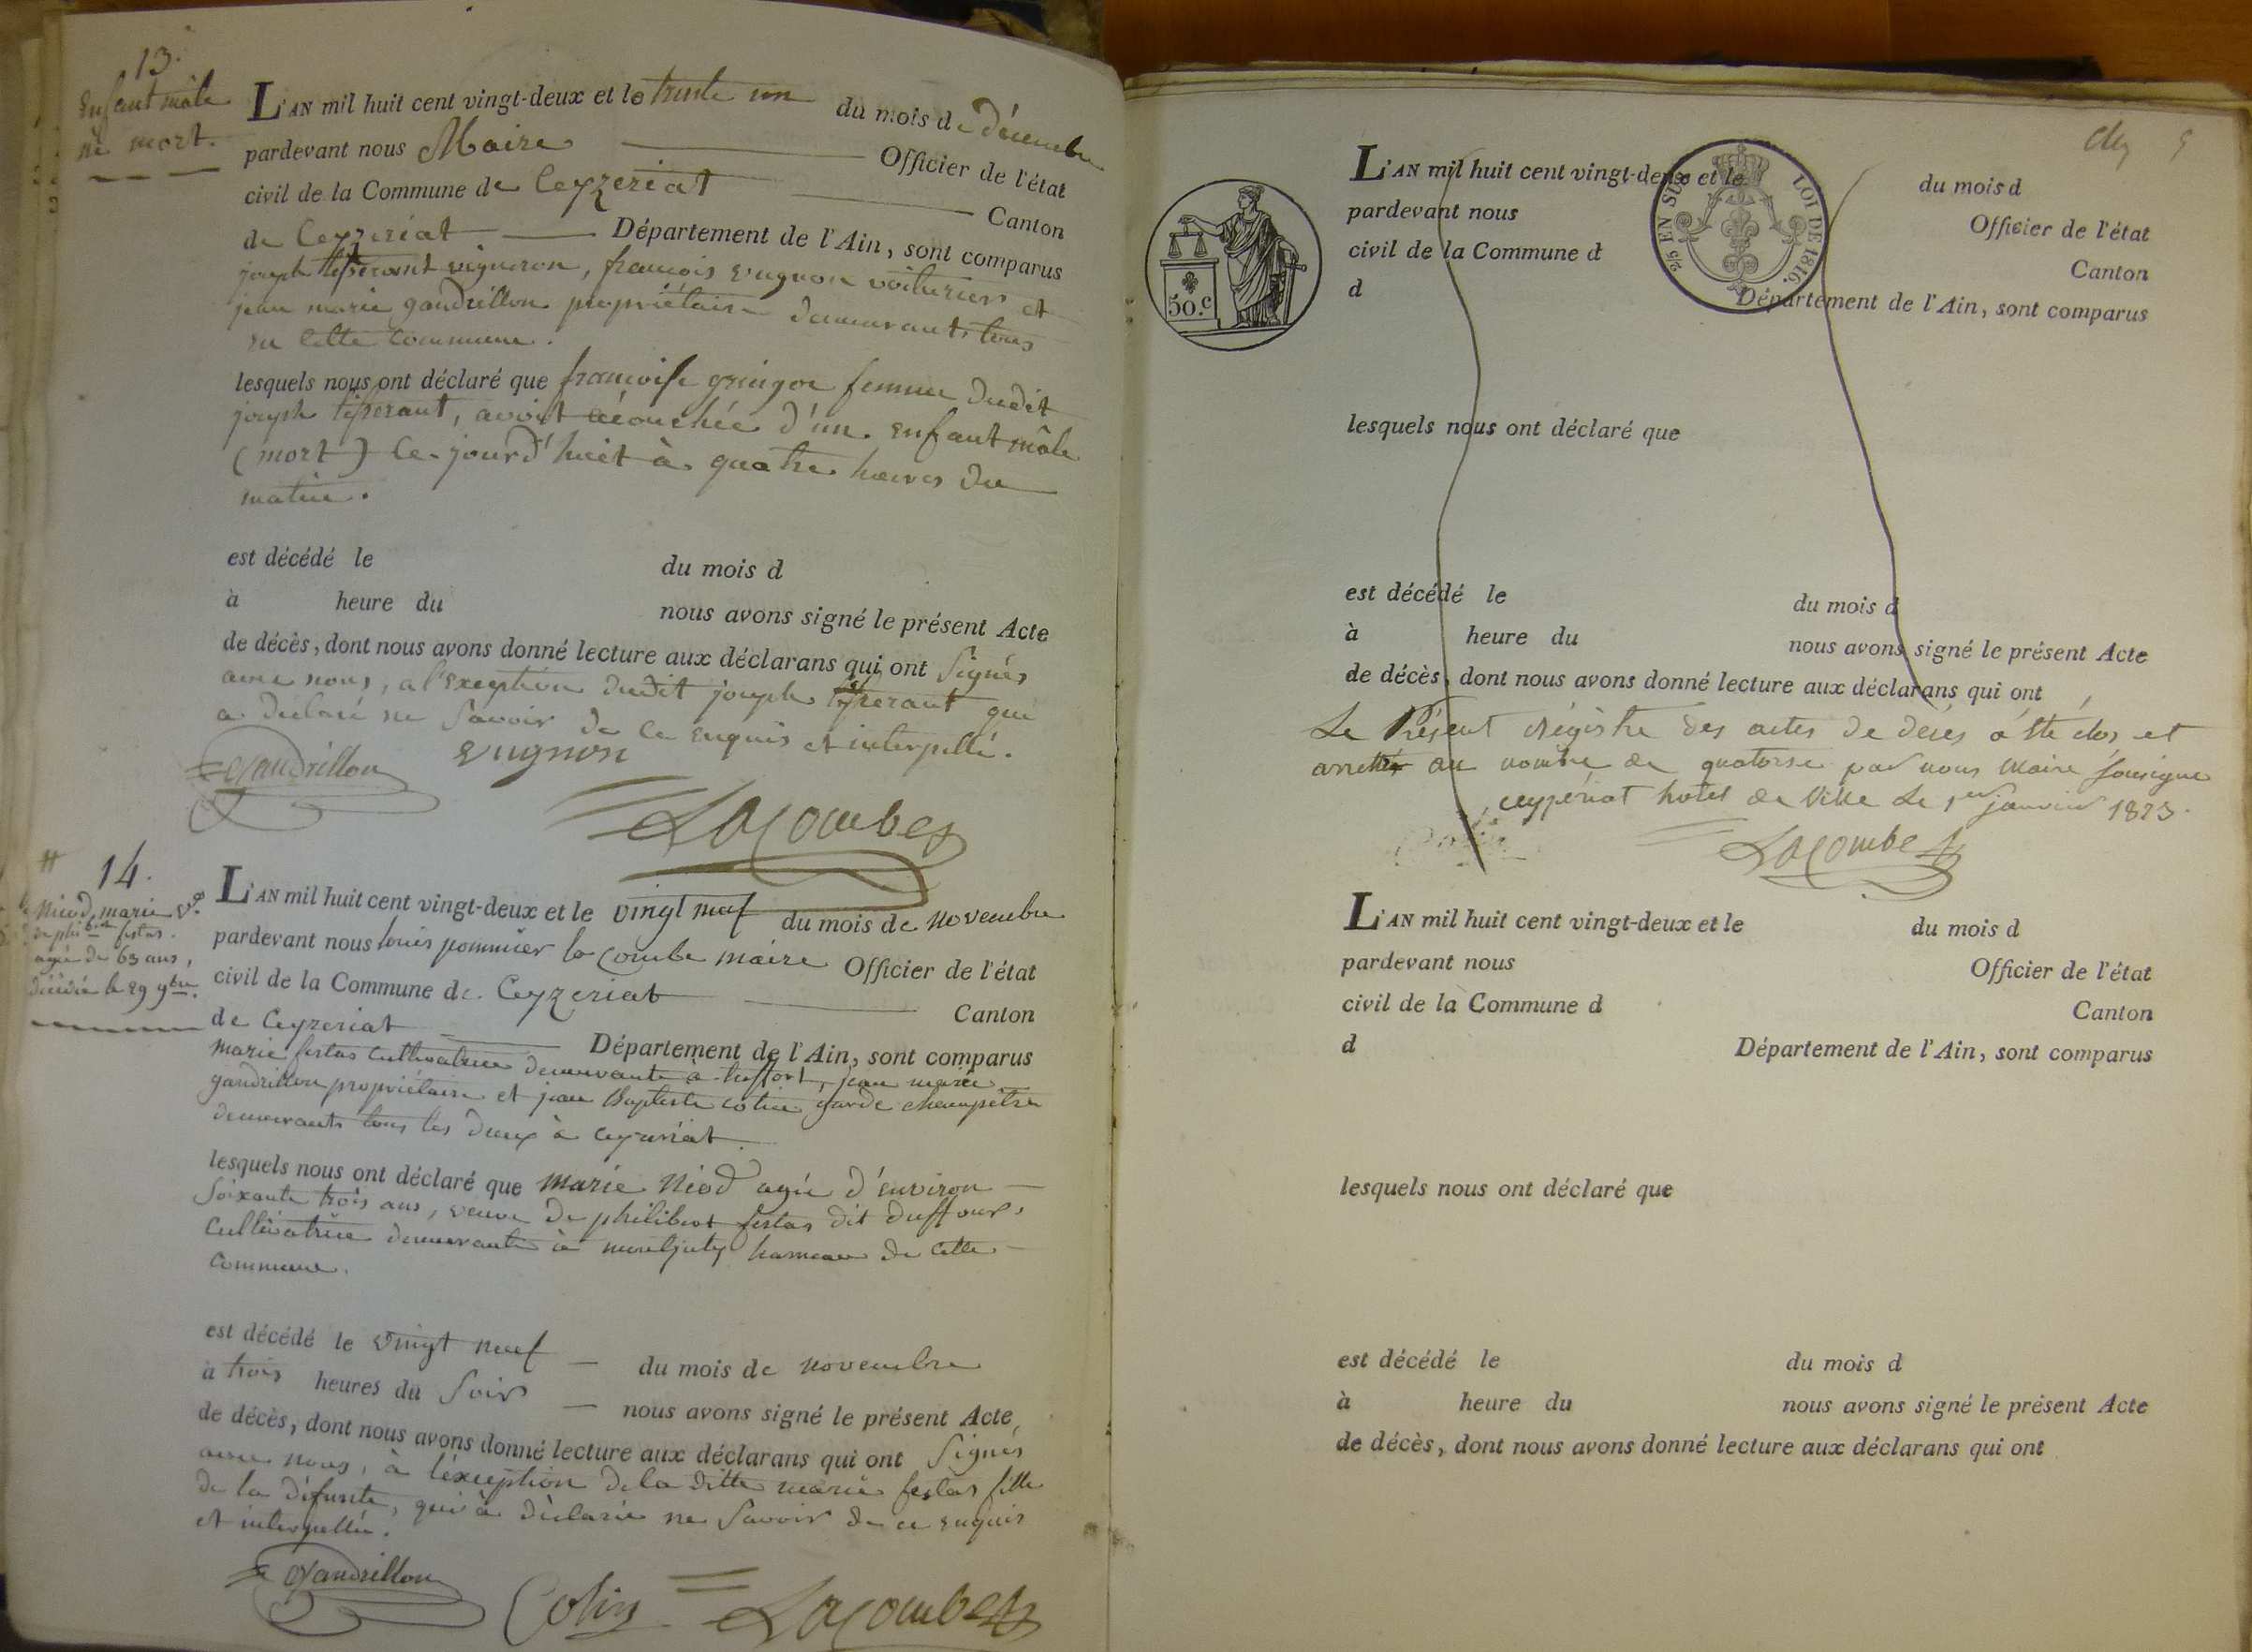 13.
Enfant mâle
né mort.
L'AN mil huit cent vingt-deux et le trente un du mois de décembre
pardevant nous Maire Officier de l'état
civil de la Commune de Ceyzeriat Canton
de Ceyzeriat Département de l'Ain, sont comparus
joseph tisserant vigneron, francois vugnon voiturier et
jean marie gandrillon propriétaire demeurants tous
en cette commune.
lesquels nous ont déclaré que francoise gringoz femme dudit
joseph tisserant, avoit accouchée d'un enfant mâle
(mort) ce jourd'huit à quatre heures du
matin.
est décédé le du mois d
à heure du nous avons signé le présent Acte
de décès, dont nous avons donné lecture aux déclarans qui ont signés
avec nous, a l'exeption dudit joseph tisserant qui
a declaré ne savoir de ce enquis et interpellé.
Gandrillon vugnon
Lacombe
14.
Niod marie vve
philibert festas.
agée de 63 ans,
décédée le 29 9bre.
L'AN mil huit cent vingt-deux et le vingt neuf du mois de novembre
pardevant nous louis pommier la combe maire Officier de l'état
civil de la Commune de Ceyzeriat Canton
de Ceyzeriat Département de l'Ain, sont comparus
marie festas cultivatrice demeurante à treffort, jean marie
gandrillon propriétaire et jean Baptiste colin garde champêtre
demeurants tous les deux à ceyzeriat
lesquels nous ont déclaré que marie Niod agée d'environ
soixante trois ans, veuve de philibert festas dit duffour,
cultivatrice demeurante à montjuly hameau de cette
commune.
est décédé le vingt neuf du mois de novembre
à trois heures du soir nous avons signé le présent Acte
de décès, dont nous avons donné lecture aux déclarans qui ont signés
avec nous, à l'éxception de la ditte marie festas fille
de la défunte, qui à déclarée ne savoir de ce enquis
et interpellée.
Gandrillon Colin Lacombe
50.c
25 EN SUS LOI DE 1816.
L'AN mil huit cent vingt-deux et le du mois d
pardevant nous Officier de l'état
civil de la Commune d Canton
d Département de l'Ain, sont comparus
lesquels nous ont déclaré que
est décédé le du mois d
à heure du nous avons signé le présent Acte
de décès, dont nous avons donné lecture aux déclarans qui ont
Le Présent régistre des actes de décés a été clos et
arretté au nombre de quatorse par nous Maire sousigné
ceyzériat hotel de Ville Le 1er janvier 1823.
Lacombe
L'AN mil huit cent vingt-deux et le du mois d
pardevant nous Officier de l'état
civil de la Commune d Canton
d Département de l'Ain, sont comparus
lesquels nous ont déclaré que
est décédé le du mois d
à heure du nous avons signé le présent Acte
de décès, dont nous avons donné lecture aux déclarans qui ont